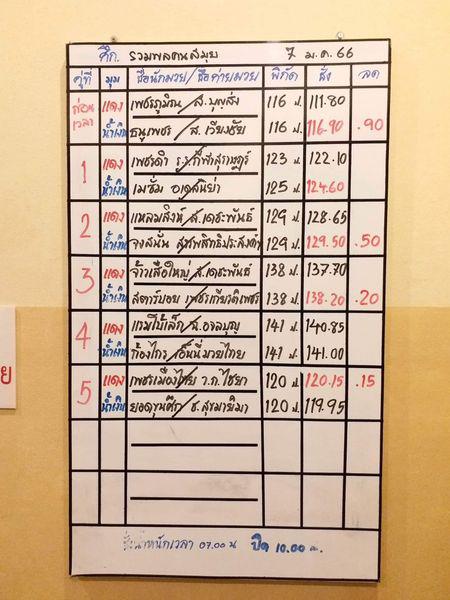 ศึก. รวมพลคนสมุย 7 ม.ค.66
คู่ที่ มุม ชื่อนักมวย/ชื่อค่ายมวย พิกัด ชั่ง ลด
ก่อนเวลา แดง เพชรภูมิณ/ส.บุญส่ง 116 ป. 111.80
น้ำเงิน ธนูเพชร/ส.เวียงชัย 116 ป. 116.90 .90
1 แดง เพชรดำ 123 ป. 122.10
น้ำเงิน เมซั่ม 125 ป. 124.60
2 แดง แหลมสิงห์/ส.เดชะพันธ์ 129 ป. 128.65
น้ำเงิน 129 ป. 129.50 .50
3 แดง จ้าวเสือใหญ่/ส.เดชะพันธ์ 138 ป. 137.70
น้ำเงิน สตาร์บอย เพชรเกียรติเพชร 138 ป. 138.20 .20
4 แดง แกมโบ้เล็ก/ 141 ป. 140.85
น้ำเงิน ก้องไกร/เอ็นนี่มวยไทย 141 ป. 141.00
5 แดง เพชรเมืองไชย ว.ก.ไชยา 120 ป. 120.15 .15
น้ำเงิน ยอดขุนศึก/ช.สุขมายิมา 120 ป. 119.95
ชั่งน้ำหนักเวลา 07.00 น ปิด 10.00 น.